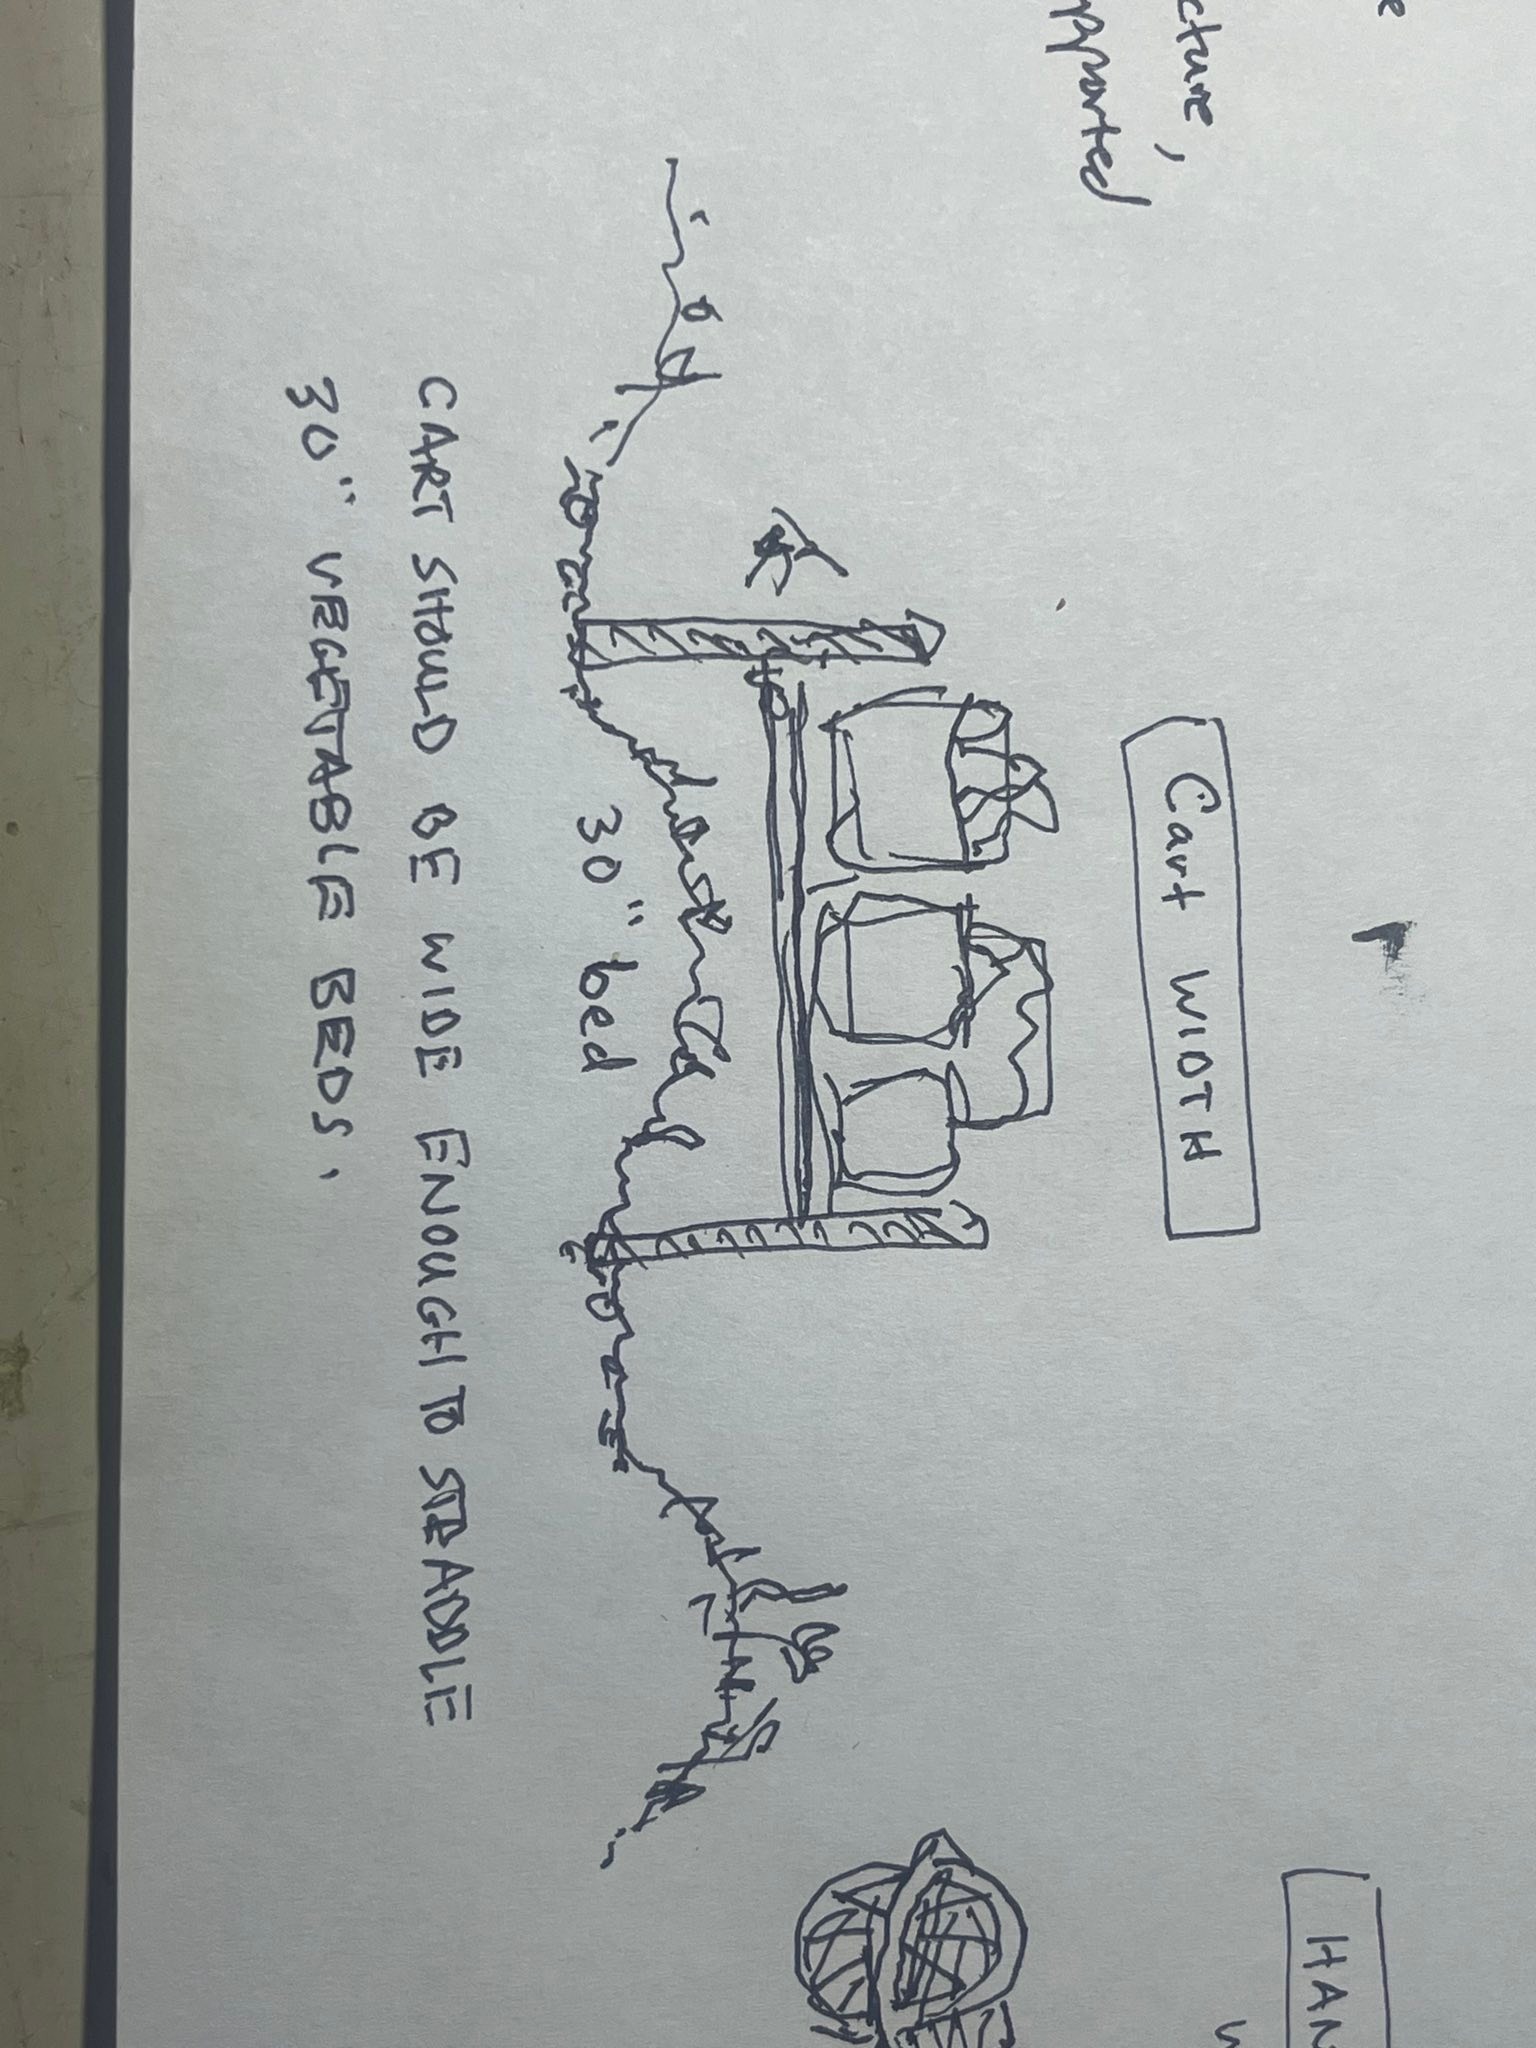 cture,
pported
Cart WIDTH
30" bed
CART SHOULD BE WIDE ENOUGH TO STRADDLE
30" VEGETABLE BEDS.
HAN